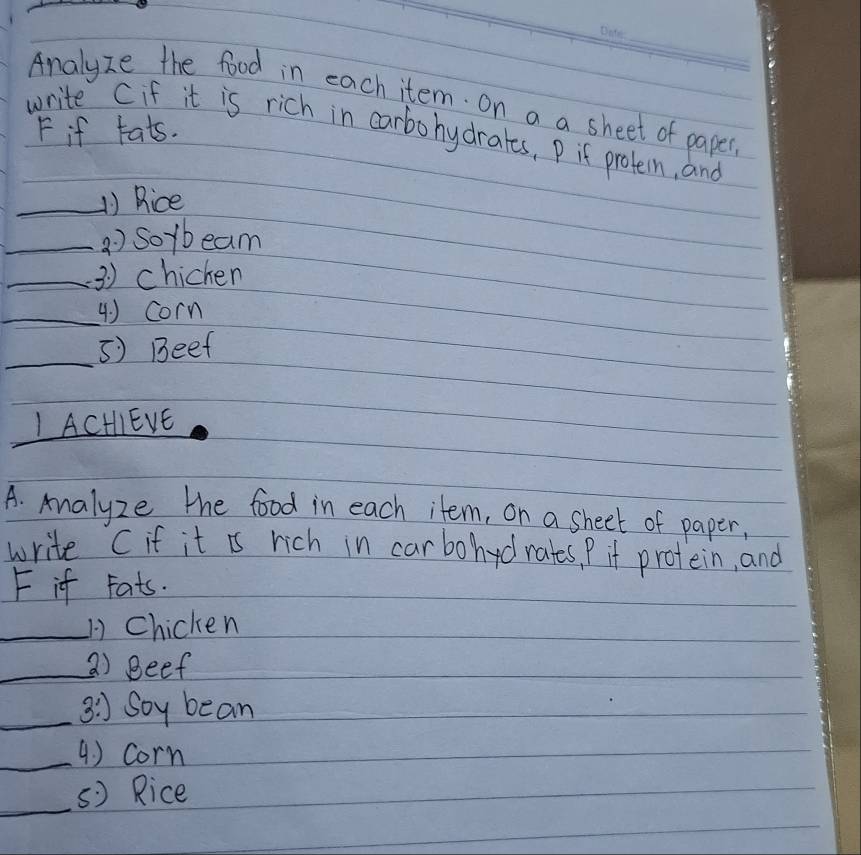 Date:
Analyze the food in each item. On a a sheet of paper,
write C if it is rich in carbohydrates, P if protein, and
F if fats.
1.) Rice
2.) Soybeam
3.) chicken
4.) corn
5.) Beef
I ACHIEVE
A. Analyze the food in each item, on a sheet of paper,
write C if it is rich in carbohydrates, P if protein, and
F if Fats.
1.) Chicken
2) Beef
3.) Soy bean
4.) Corn
5.) Rice